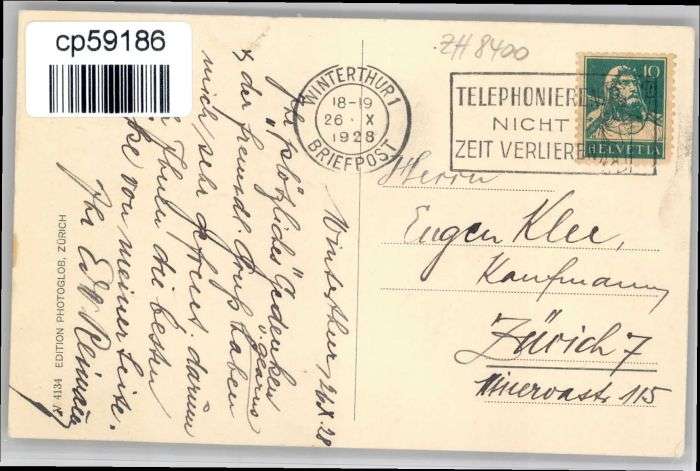 cp59186
ZH 8400
WINTERTHUR 1
18-19
26. X
1928
BRIEFPOST
TELEPHONIEREN
NICHT
ZEIT VERLIEREN
10
HELVETIA
Winterthur, 26.X.28
Ihr "plötzliches" Gedenken
& der freundl. Gruss haben
mich sehr gefreut, darum
Ihnen die besten
von meiner Seite.
Ihr Ed.
Herrn
Eugen Klee,
Kaufmann
Zürich 7
Minervastr 115
N° 4134 EDITION PHOTOGLOB, ZÜRICH